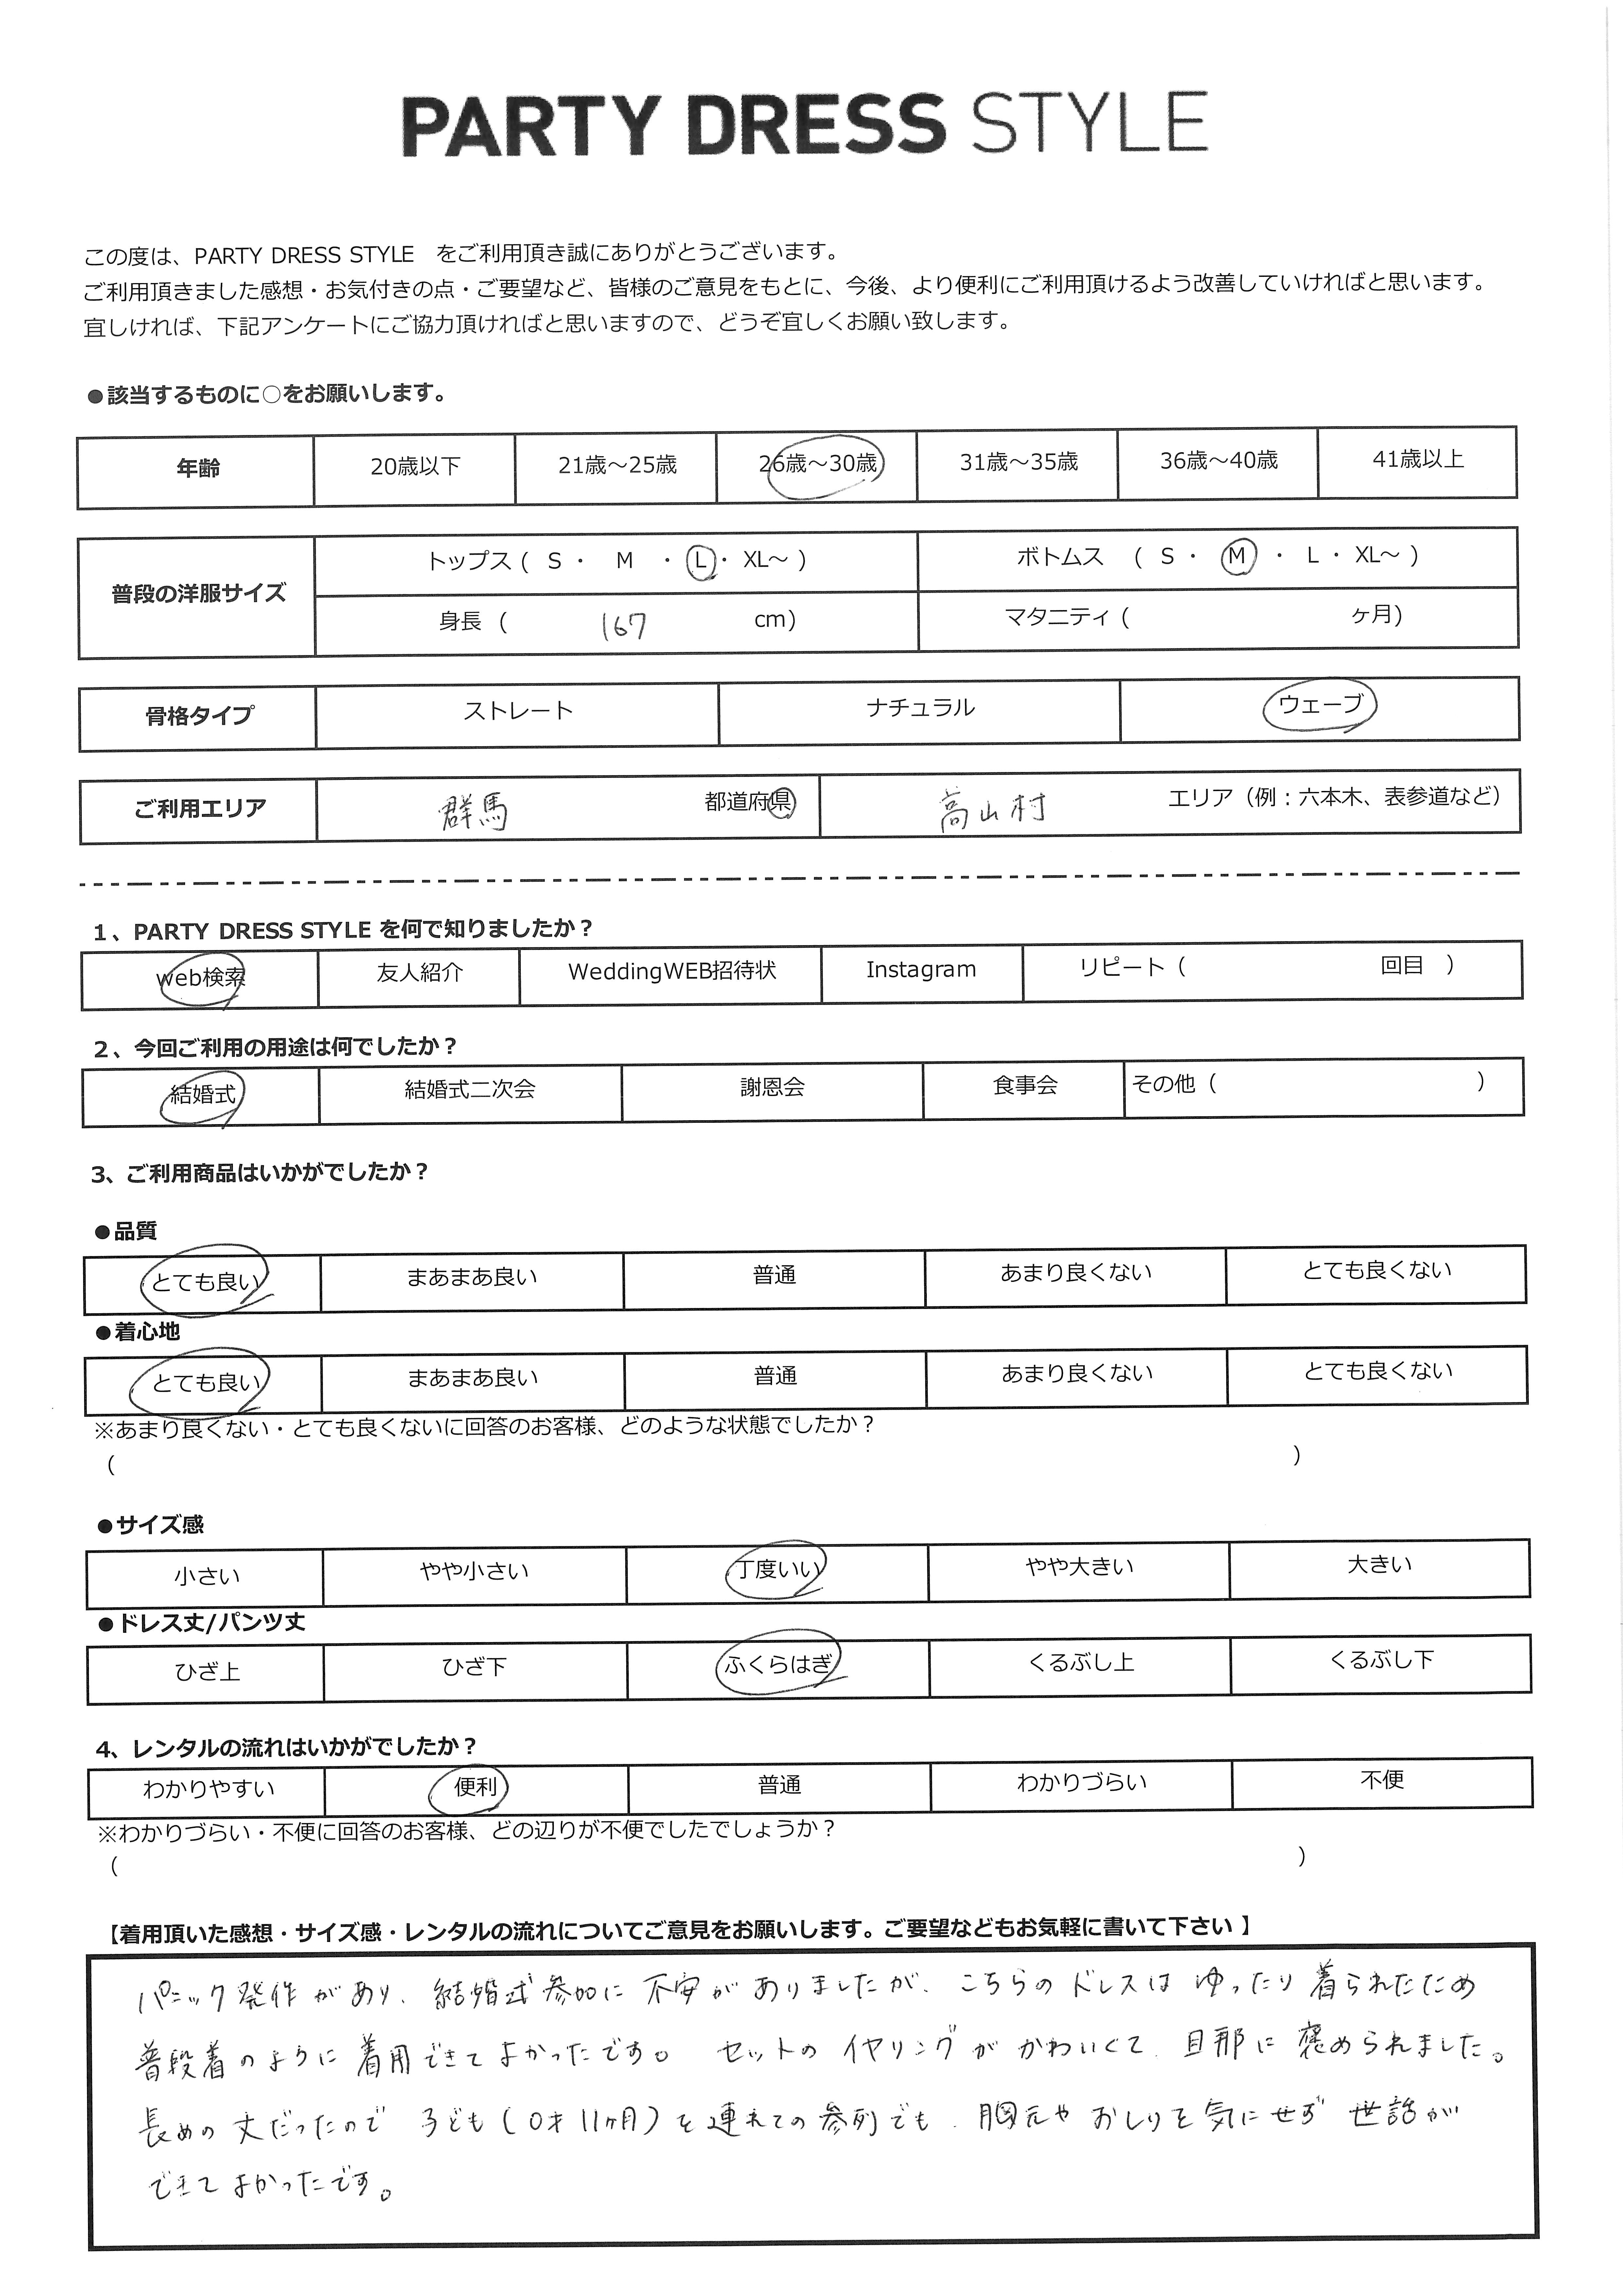 PARTY DRESS STYLE
この度は、PARTY DRESS STYLE　をご利用頂き誠にありがとうございます。
ご利用頂きました感想・お気付きの点・ご要望など、皆様のご意見をもとに、今後、より便利にご利用頂けるよう改善していければと思います。
宜しければ、下記アンケートにご協力頂ければと思いますので、どうぞ宜しくお願い致します。
●該当するものに○をお願いします。
年齢 20歳以下 21歳～25歳 26歳～30歳 31歳～35歳 36歳～40歳 41歳以上
普段の洋服サイズ トップス ( S ・ M ・ L ・ XL～ ) ボトムス ( S ・ M ・ L ・ XL～ )
身長 ( 167 cm) マタニティ ( ヶ月)
骨格タイプ ストレート ナチュラル ウェーブ
ご利用エリア 群馬 都道府県 高山村 エリア（例：六本木、表参道など）
1、PARTY DRESS STYLE を何で知りましたか？
web検索 友人紹介 WeddingWEB招待状 Instagram リピート（ 回目 ）
2、今回ご利用の用途は何でしたか？
結婚式 結婚式二次会 謝恩会 食事会 その他（ ）
3、ご利用商品はいかがでしたか？
●品質
とても良い まあまあ良い 普通 あまり良くない とても良くない
●着心地
とても良い まあまあ良い 普通 あまり良くない とても良くない
※あまり良くない・とても良くないに回答のお客様、どのような状態でしたか？
( )
●サイズ感
小さい やや小さい 丁度いい やや大きい 大きい
●ドレス丈/パンツ丈
ひざ上 ひざ下 ふくらはぎ くるぶし上 くるぶし下
4、レンタルの流れはいかがでしたか？
わかりやすい 便利 普通 わかりづらい 不便
※わかりづらい・不便に回答のお客様、どの辺りが不便でしたでしょうか？
( )
【着用頂いた感想・サイズ感・レンタルの流れについてご意見をお願いします。ご要望などもお気軽に書いて下さい 】
パニック発作があり、結婚式参加に不安がありましたが、こちらのドレスはゆったり着られたため
普段着のように着用できてよかったです。 セットのイヤリングがかわいくて、旦那に褒められました。
長めの丈だったので 子ども(0才11ヶ月)を連れての参列でも、胸元やおしりを気にせず世話が
できてよかったです。